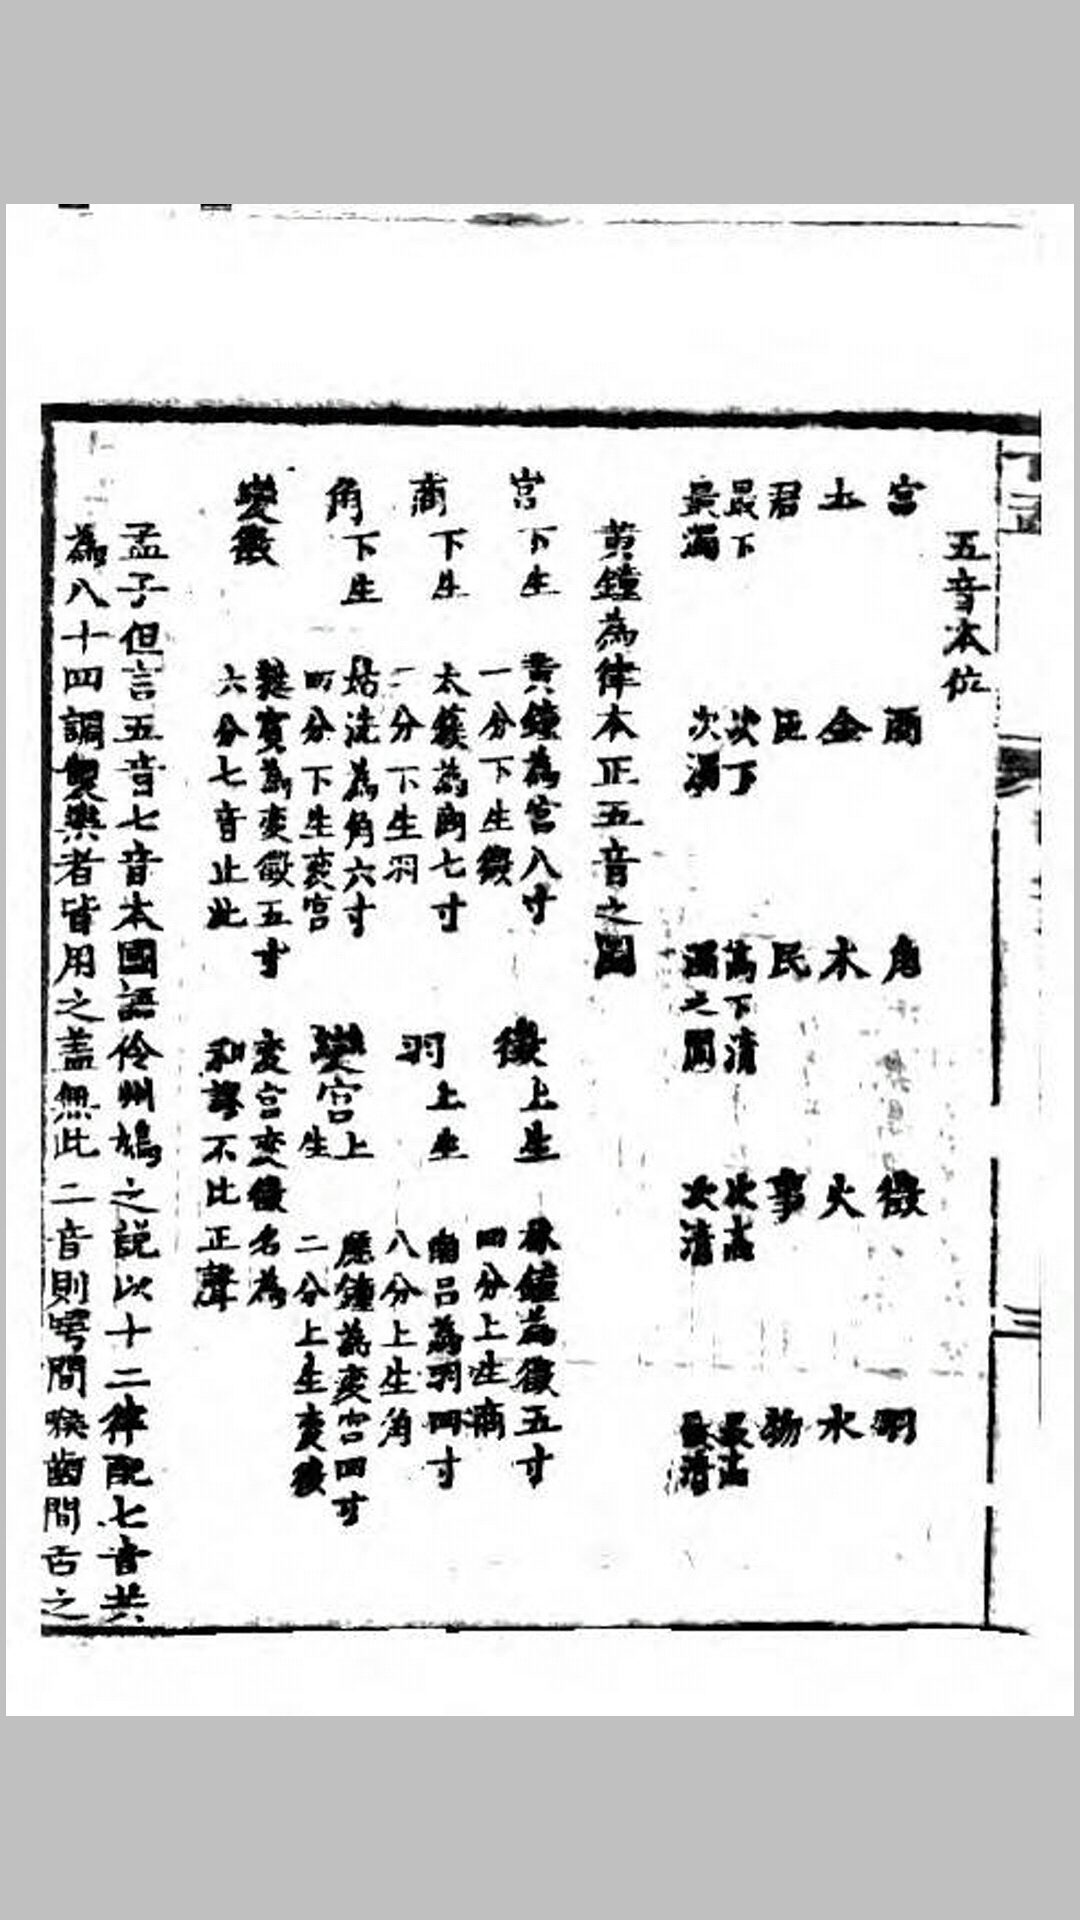 五音本位
宮 商 角 徵 羽
土 金 木 火 水
君 臣 民 事 物
最下 次下 高下清 次高 最高
最濁 次濁 濁之間 次清 最清
黄鐘為律本正五音之圖
宮下生 黄鐘為宮八寸一分下生徵 徵上生 林鐘為徵五寸四分上生商
商下生 太簇為商七寸二分下生羽 羽上生 南呂為羽四寸八分上生角
角下生 姑洗為角六寸四分下生变宮 變宮上生 應鐘為变宮四寸二分上生变徵
變徵 蕤賓為变徵五寸六分七音止此 变宮变徵名為和謬不比正聲
孟子但言五音七音本國語伶州鳩之説以十二律配七音共
為八十四調製樂者皆用之盖無此二音則腭間喉齒間舌之